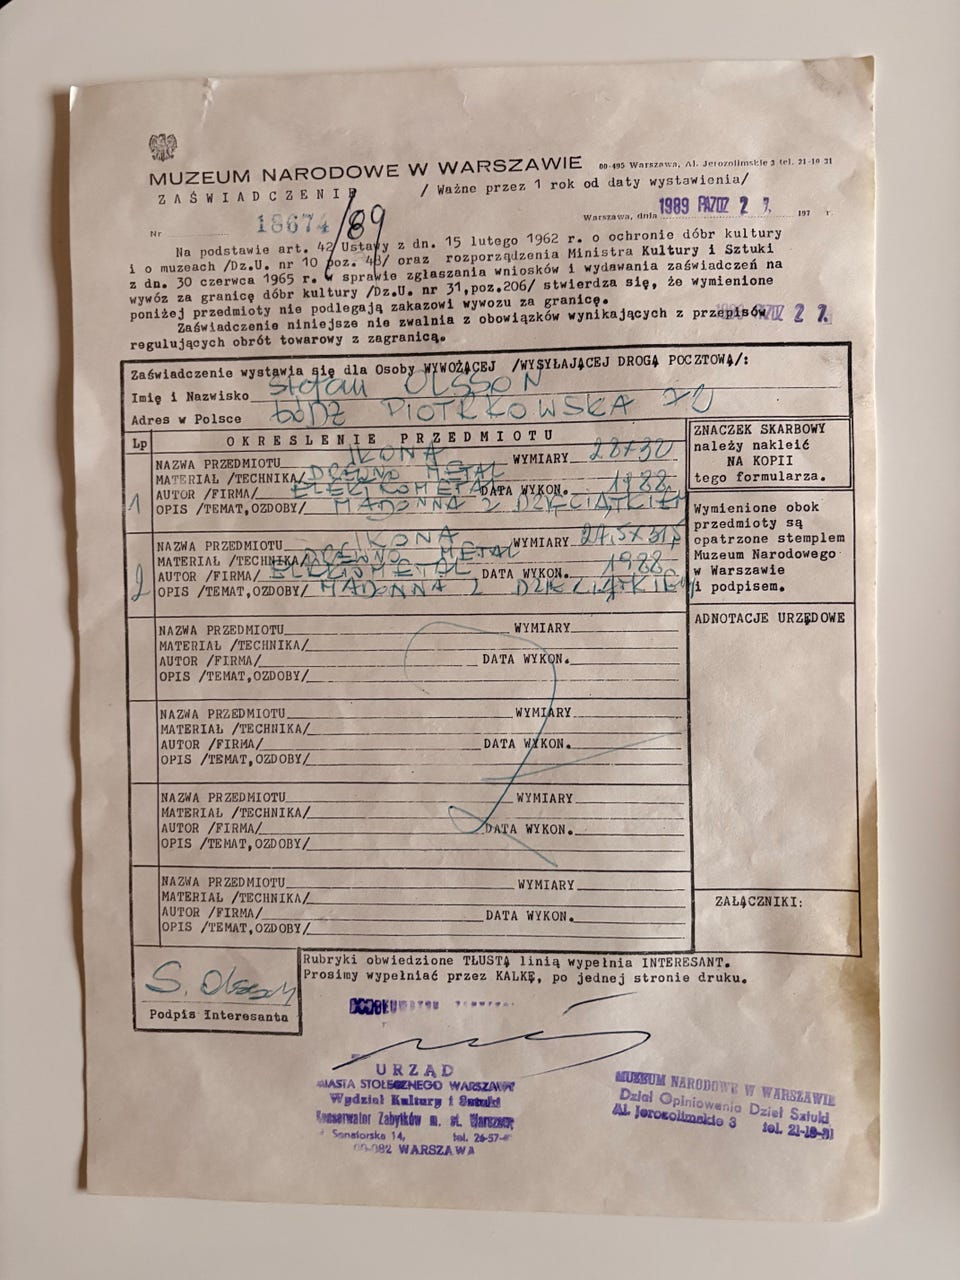 MUZEUM NARODOWE W WARSZAWIE
00-495 Warszawa, Al. Jerozolimskie 3 tel. 21-10-31
ZAŚWIADCZENIE
/ Ważne przez 1 rok od daty wystawienia/
Nr 18674/89
Warszawa, dnia 1989 PAZDZ 2 7. 197 r.
Na podstawie art. 42 Ustawy z dn. 15 lutego 1962 r. o ochronie dóbr kultury
i o muzeach /Dz.U. nr 10 poz. 48/ oraz rozporządzenia Ministra Kultury i Sztuki
z dn. 30 czerwca 1965 r. w sprawie zgłaszania wniosków i wydawania zaświadczeń na
wywóz za granicę dóbr kultury /Dz.U. nr 31,poz.206/ stwierdza się, że wymienione
poniżej przedmioty nie podlegają zakazowi wywozu za granicę.
Zaświadczenie niniejsze nie zwalnia z obowiązków wynikających z przepisów
2 7.
regulujących obrót towarowy z zagranicą.
Zaświadczenie wystawia się dla Osoby WYWOŻĄCEJ /WYSYŁAJĄCEJ DROGĄ POCZTOWĄ/:
Imię i Nazwisko Stefan OLSSON
Adres w Polsce ŁÓDZ PIOTRKOWSKA 72
Lp OKREŚLENIE PRZEDMIOTU
1 NAZWA PRZEDMIOTU IKONA WYMIARY 28×30
MATERIAŁ /TECHNIKA/ DREWNO METAL
AUTOR /FIRMA/ ELEKTROMETAL DATA WYKON. 1988
OPIS /TEMAT,OZDOBY/ MADONNA Z DZIECIĄTKIEM
2 NAZWA PRZEDMIOTU IKONA WYMIARY 27,5×31,5
MATERIAŁ /TECHNIKA/ DREWNO METAL
AUTOR /FIRMA/ ELEKTROMETAL DATA WYKON. 1988
OPIS /TEMAT,OZDOBY/ MADONNA Z DZIECIĄTKIEM
NAZWA PRZEDMIOTU WYMIARY
MATERIAŁ /TECHNIKA/
AUTOR /FIRMA/ DATA WYKON.
OPIS /TEMAT,OZDOBY/
NAZWA PRZEDMIOTU WYMIARY
MATERIAŁ /TECHNIKA/
AUTOR /FIRMA/ DATA WYKON.
OPIS /TEMAT,OZDOBY/
NAZWA PRZEDMIOTU WYMIARY
MATERIAŁ /TECHNIKA/
AUTOR /FIRMA/ DATA WYKON.
OPIS /TEMAT,OZDOBY/
NAZWA PRZEDMIOTU WYMIARY
MATERIAŁ /TECHNIKA/
AUTOR /FIRMA/ DATA WYKON.
OPIS /TEMAT,OZDOBY/
ZNACZEK SKARBOWY
należy nakleić
NA KOPII
tego formularza.
Wymienione obok
przedmioty są
opatrzone stemplem
Muzeum Narodowego
w Warszawie
i podpisem.
ADNOTACJE URZĘDOWE
ZAŁĄCZNIKI:
Rubryki obwiedzione TŁUSTĄ linią wypełnia INTERESANT.
Prosimy wypełniać przez KALKĘ, po jednej stronie druku.
S. Olsson
Podpis Interesanta
URZĄD
MIASTA STOŁECZNEGO WARSZAWY
Wydział Kultury i Sztuki
Konserwator Zabytków m. st. Warszawy
Senatorska 14, tel. 26-57-
00-082 WARSZAWA
MUZEUM NARODOWE W WARSZAWIE
Dział Opiniowania Dzieł Sztuki
Al. Jerozolimskie 3 tel. 21-10-31